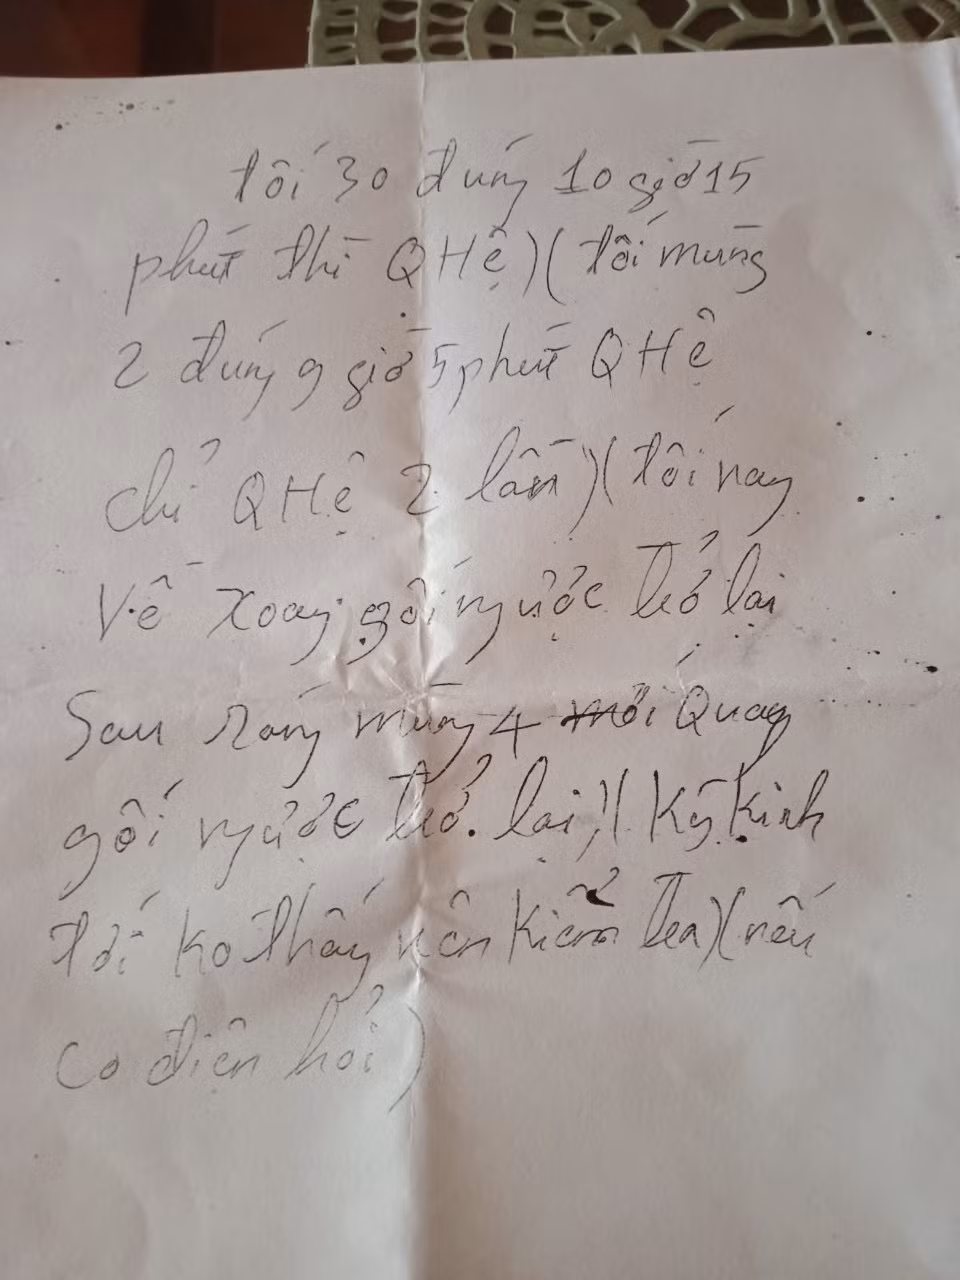 tối 30 đúng 10 giờ 15
phút thì QHệ)(tối mùng
2 đúng 9 giờ 5 phút QHệ
chỉ QHệ 2 lần)(tối nay
Về xoay gối ngược trở lại
Sau sáng mùng 4 mới Quay
gối ngược trở lại)(Kỳ kinh
tới ko thấy nên kiểm tra)(nếu
có điện hỏi)